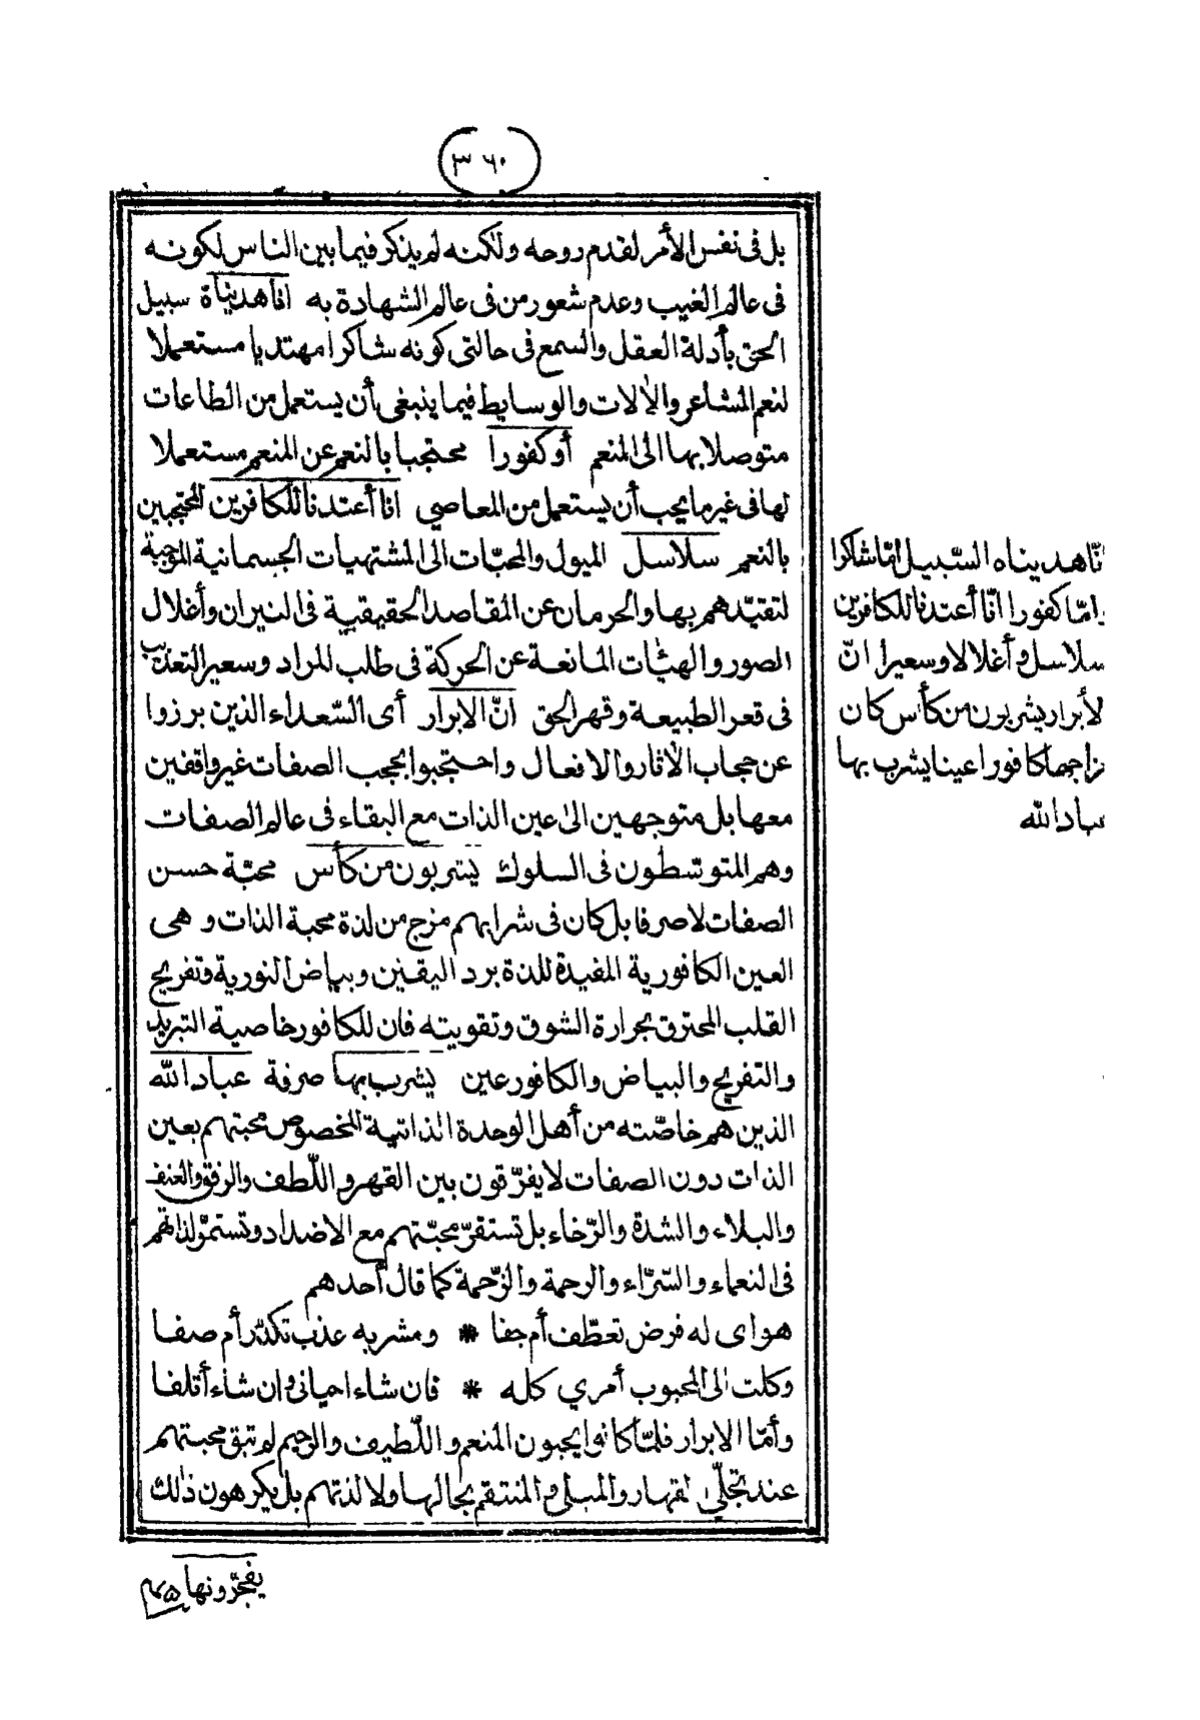 (٣٦٠)
بل فى نفس الأمر لقدم روحه ولكنه لم يذكر فيما بين الناس لكونه
فى عالم الغيب وعدم شعور من فى عالم الشهادة به انا هديناه سبيل
الحق بأدلة العقل والسمع فى حالتى كونه شاكرا مهتديا مستعملا
لنعم المشاعر والالات والوسايط فيما ينبغى أن يستعمل من الطاعات
متوصلا بها الى المنعم أو كفورا محتجبا بالنعم عن المنعم مستعملا
لها فى غير ما يجب أن يستعمل من المعاصي انا أعتدنا للكافرين المحتجبين
بالنعم سلاسل الميول والمحبّات الى المشتهيات الجسمانية الموجبة
لتقيّدهم بها والحرمان عن المقاصد الحقيقية فى النيران وأغلال
الصور والهيئات المانعة عن الحركة فى طلب المراد وسعير التعذيب
فى قعر الطبيعة وقهر الحق انّ الابرار أى السّعداء الذين برزوا
عن حجاب الاثار والافعال واحتجبوا بحجب الصفات غير واقفين
معها بل متوجهين الى عين الذات مع البقاء فى عالم الصفات
وهم المتوسّطون فى السلوك يشربون من كأس محبّة حسن
الصفات لا صرفا بل كان فى شرابهم مزج من لذة محبة الذات وهى
العين الكافورية المفيدة للذة برد اليقين وبياض النورية وتفريح
القلب المحترق بحرارة الشوق وتقويته فان للكافور خاصية التبريد
والتفريح والبياض والكافور عين يشرب بها صرفة عباد الله
الذين هم خاصّته من أهل الوحدة الذاتية المخصوص محبتهم بعين
الذات دون الصفات لا يفرّقون بين القهر واللّطف والرفق والعنف
والبلاء والشدة والرّخاء بل تستقرّ محبّتهم مع الاضداد وتستمرّ لذاتهم
فى النعماء والسّرّاء والرحمة والزّحمة كما قال أحدهم
هواى له فرض تعطّف أم جفا * ومشربه عذب تكدّر أم صفا
وكلت الى المحبوب أمري كله * فان شاء احيانى وان شاء أتلفا
وأمّا الابرار فلمّا كانوا يحبون المنعم واللّطيف والرحيم لم تبق محبتهم
عند تجلّى القهار والمبلى والمنتقم بحالها ولا لذتهم بل يكرهون ذلك
انّا هديناه السّبيل امّا شاكرا
وامّا كفورا انّا أعتدنا للكافرين
سلاسل وأغلالا وسعيرا انّ
الأبرار يشربون من كأس كان
مزاجها كافورا عينا يشرب بها
عباد الله
يفجّرونها